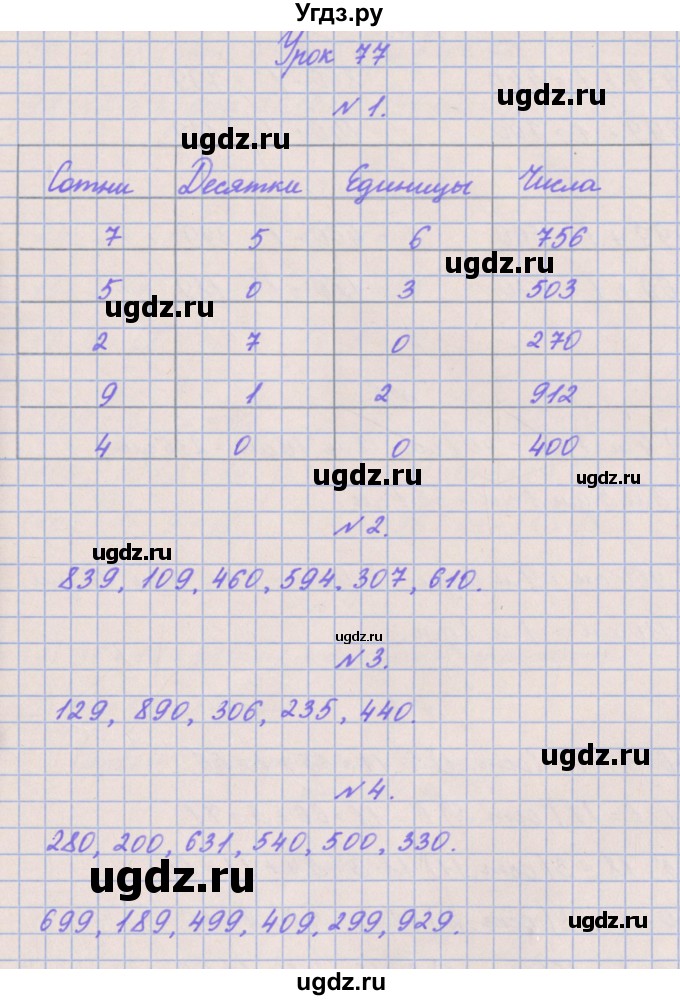 Угдз.ру
Урок 77
N 1.
ugdz.ru
ugdz.ru
Сотни Десятки Единицы Числа
7 5 6 756
ugdz.ru
5 0 3 503
ugdz.ru
2 7 0 270
9 1 2 912
4 0 0 400
ugdz.ru
ugdz.ru
N 2.
ugdz.ru
839, 109, 460, 594. 307, 610.
ugdz.ru
N 3.
129, 890, 306, 235, 440.
ugdz.ru
N 4.
280, 200, 631, 540, 500, 330.
ugdz.ru
699, 189, 499, 409, 299, 929.
ugdz.ru
ugdz.ru